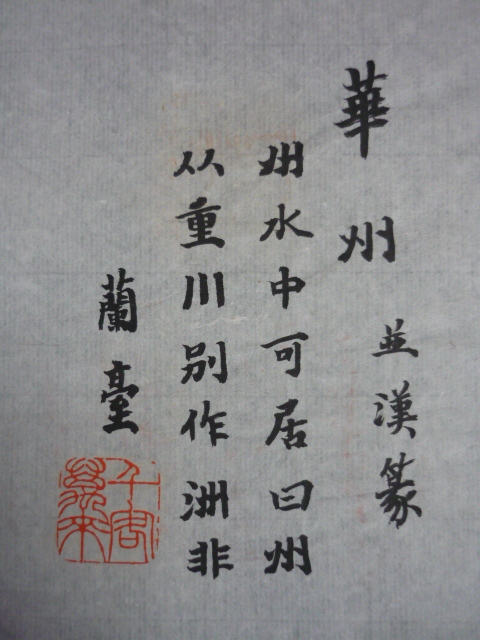 華州
並漢篆
州水中可居曰州
从重川別作洲非
蘭臺
千客
萬来